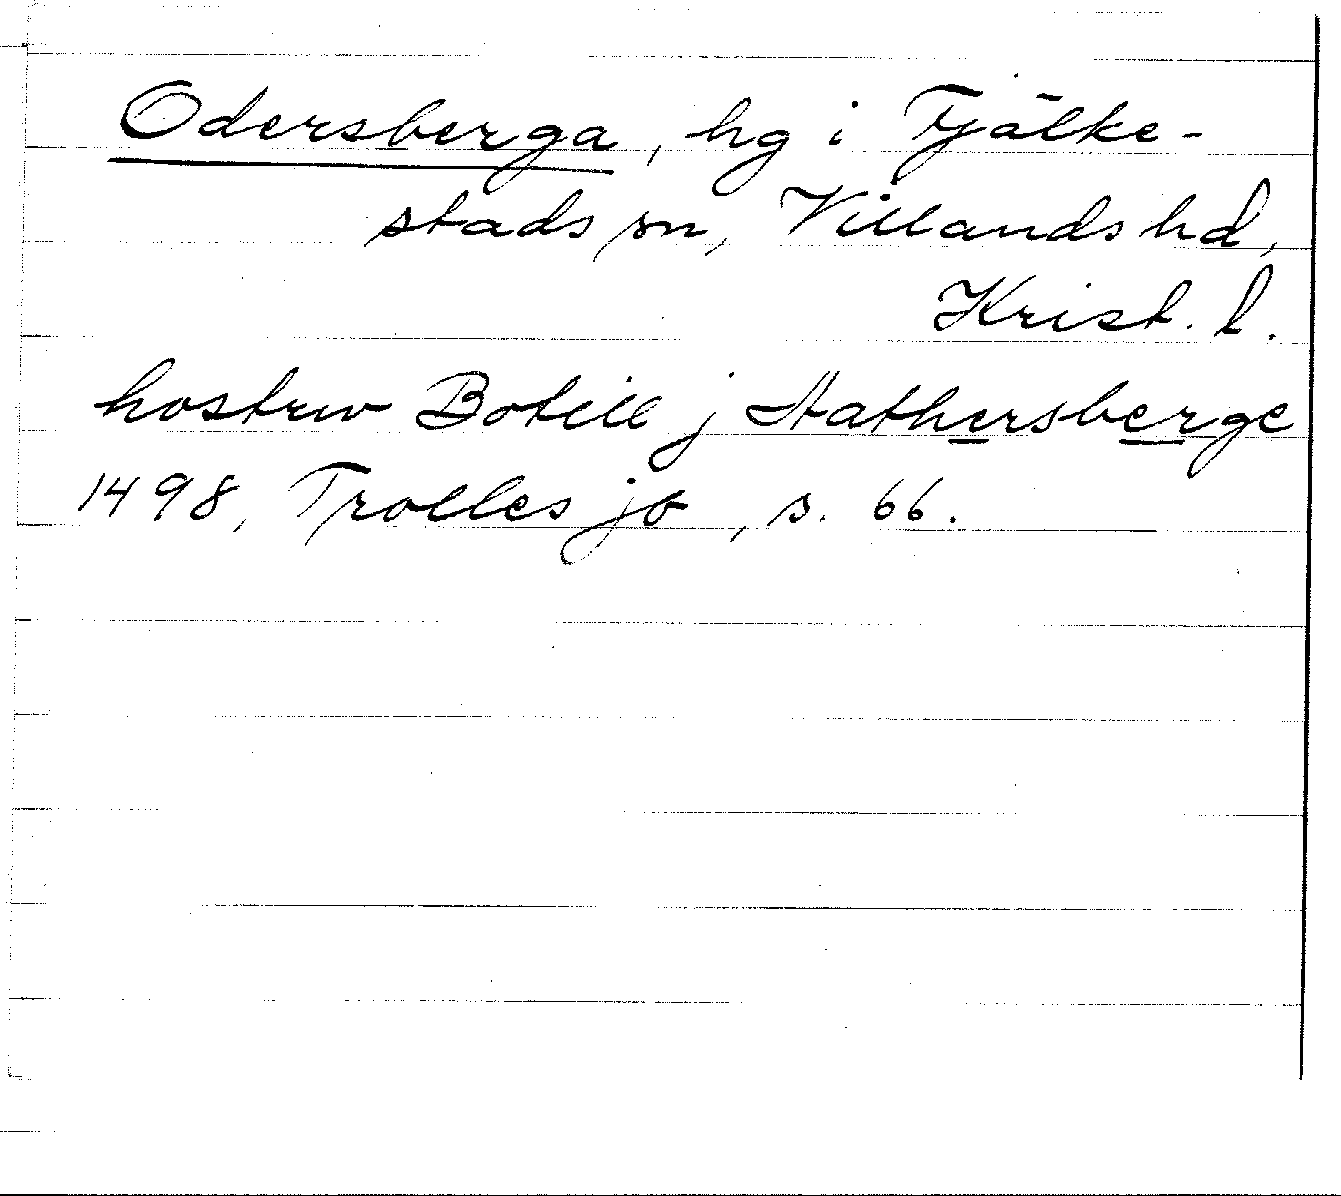 Odersberga, hg i Fjälke-
stads sn, Villands hd,
Krist. l.
hostrw Botill j Hathersberge
1498, Trolles jb, s. 66.